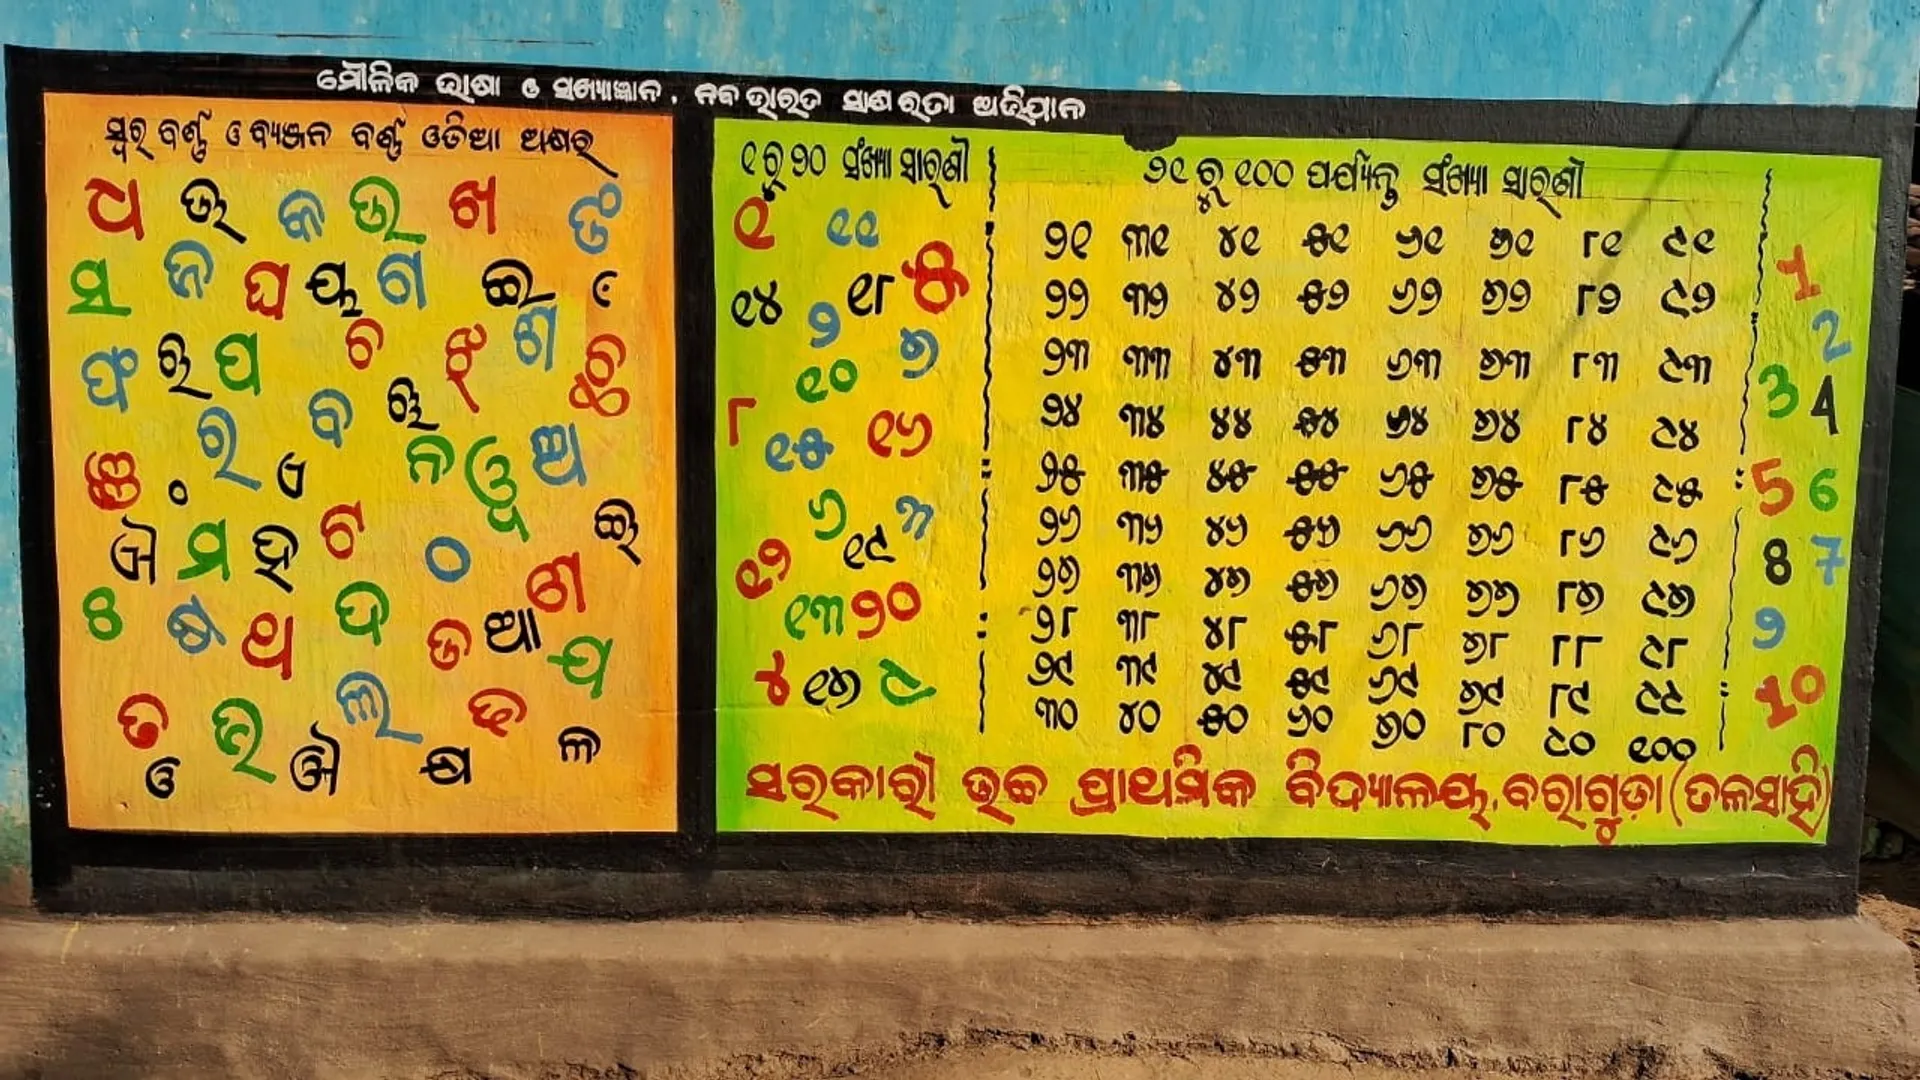 ମୌଳିକ ଭାଷା ଓ ସଖ୍ୟାଜ୍ଞାନ, ନବ ଭାରତ ସାକ୍ଷରତା ଅଭିଯାନ
ସ୍ୱର ବର୍ଣ୍ଣ ଓ ବ୍ୟଞ୍ଜନ ବର୍ଣ୍ଣ ଓଡିଆ ଅକ୍ଷର
ଧ ଊ କ ଉ ଖ ଙ
ସ ଜ ଘ ୟ ଗ ଇ
ଫ ର ପ ଚ ଝ ଶ ଛ
ର ବ ନ ୱ ଅ
ଞ ଂ ଏ
ଐ ମ ହ ଟ ଠ ଣ ଈ
ଃ ଷ ଥ ଦ ଡ ଆ ଯ
ତ ଭ ଲ ଢ
ଓ ଔ କ୍ଷ ଳ
୧ ରୁ ୨୦ ସଂଖ୍ୟା ସାରଣୀ
୧ ୧୧
୧୪ ୨ ୧୮ ୫
୧୦ ୭
୮ ୧୫ ୧୬
୬ ୩
୧୨ ୧୯
୧୩ ୨୦
୪ ୧୭ ୯
୨୧ ରୁ ୧୦୦ ପର୍ଯ୍ୟନ୍ତ ସଂଖ୍ୟା ସାରଣୀ
୨୧ ୩୧ ୪୧ ୫୧ ୬୧ ୭୧ ୮୧ ୯୧
୨୨ ୩୨ ୪୨ ୫୨ ୬୨ ୭୨ ୮୨ ୯୨
୨୩ ୩୩ ୪୩ ୫୩ ୬୩ ୭୩ ୮୩ ୯୩
୨୪ ୩୪ ୪୪ ୫୪ ୬୪ ୭୪ ୮୪ ୯୪
୨୫ ୩୫ ୪୫ ୫୫ ୬୫ ୭୫ ୮୫ ୯୫
୨୬ ୩୬ ୪୬ ୫୬ ୬୬ ୭୬ ୮୬ ୯୬
୨୭ ୩୭ ୪୭ ୫୭ ୬୭ ୭୭ ୮୭ ୯୭
୨୮ ୩୮ ୪୮ ୫୮ ୬୮ ୭୮ ୮୮ ୯୮
୨୯ ୩୯ ୪୯ ୫୯ ୬୯ ୭୯ ୮୯ ୯୯
୩୦ ୪୦ ୫୦ ୬୦ ୭୦ ୮୦ ୯୦ ୧୦୦
1
2
3 4
5 6
8 7
9
10
ସରକାରୀ ଉଚ୍ଚ ପ୍ରାଥମିକ ବିଦ୍ୟାଳୟ, ବରାଗୁଡ଼ା (ତଳସାହି)